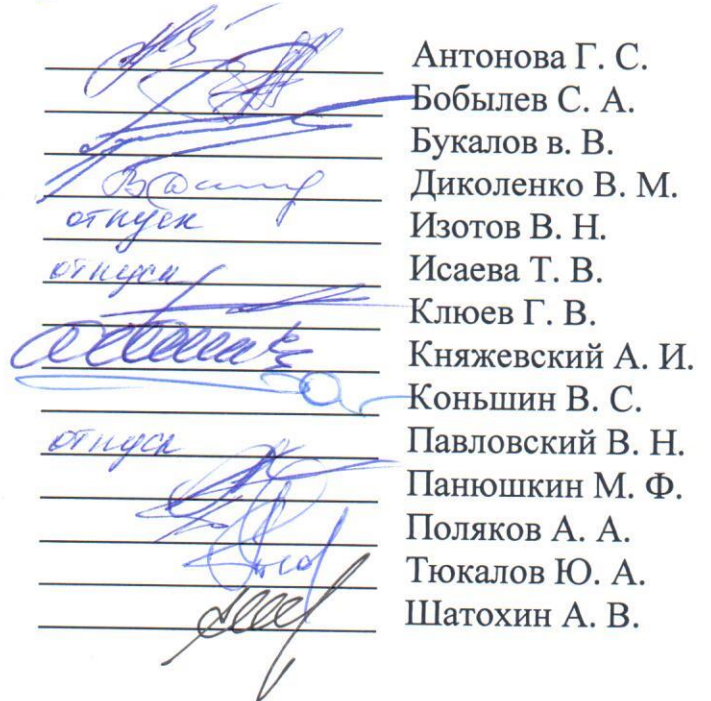 Антонова Г. С.
Бобылев С. А.
Букалов в. В.
Диколенко В. М.
отпуск Изотов В. Н.
отпуск Исаева Т. В.
Клюев Г. В.
Княжевский А. И.
Коньшин В. С.
отпуск Павловский В. Н.
Панюшкин М. Ф.
Поляков А. А.
Тюкалов Ю. А.
Шатохин А. В.